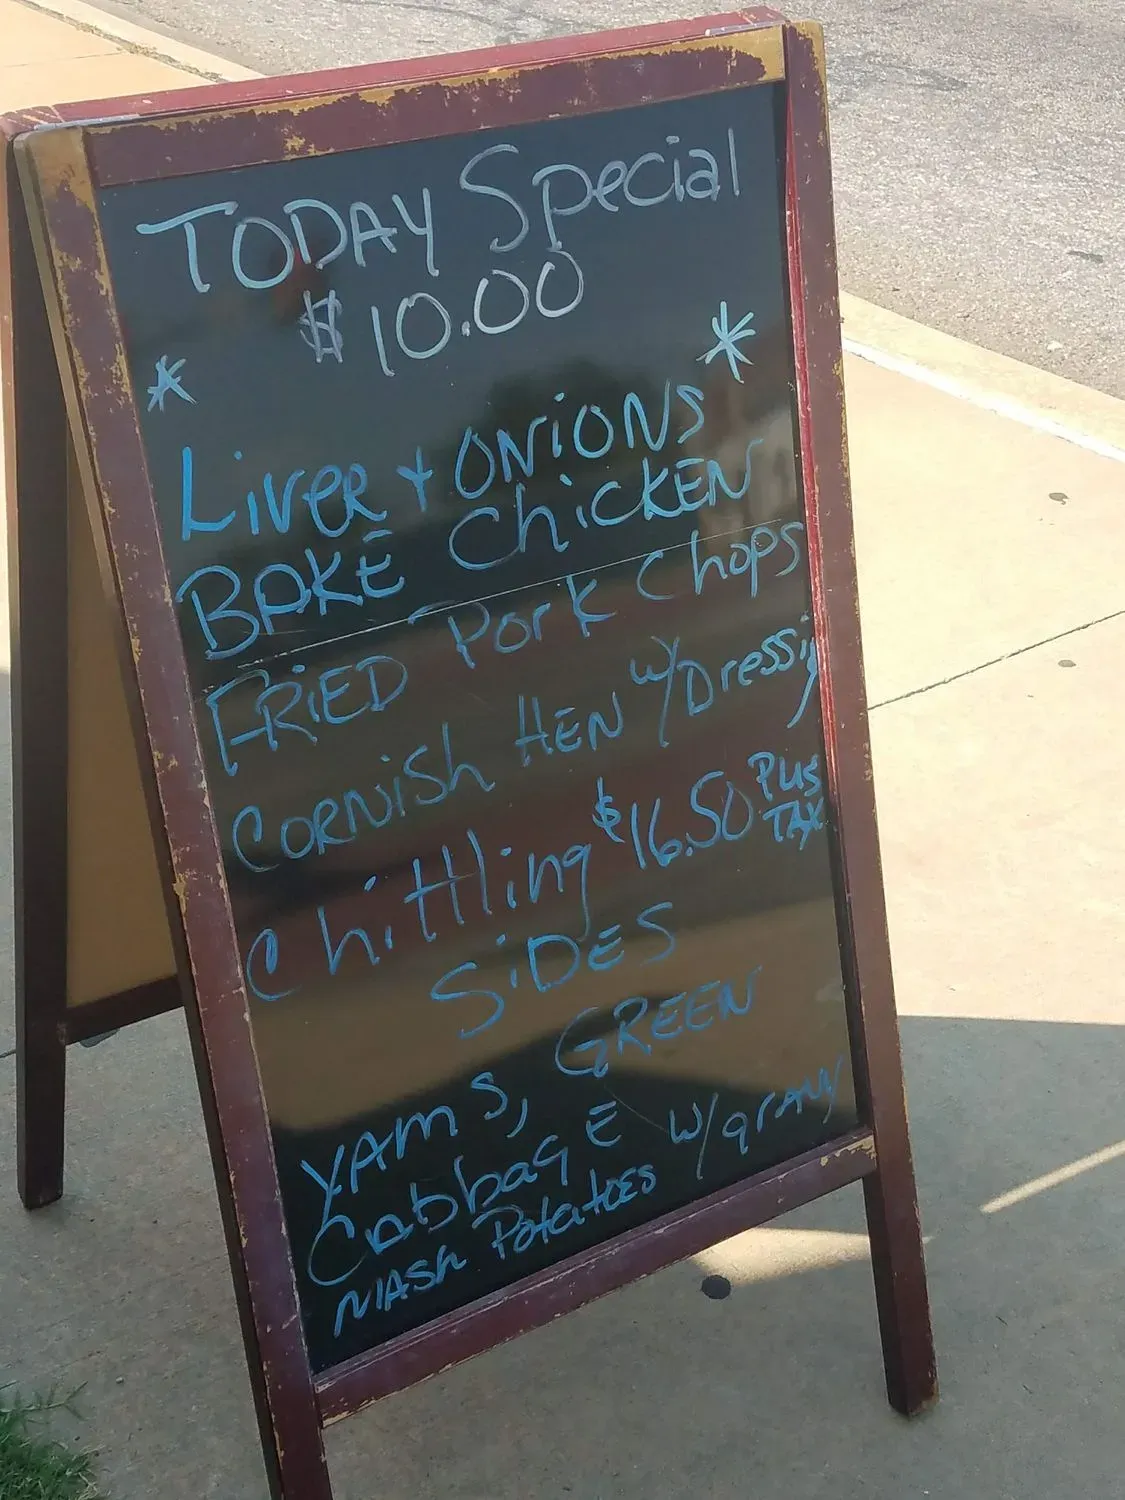 TODAY Special
$10.00
* *
Liver + ONiONS
BAKE ChicKEN
FRiED Pork Chops
CORNiSh HEN w/Dressig
Chittling $16.50 PluS TAX
SiDES
YAmS, GREEN
CabbagE w/gravy
MASh Potatoes